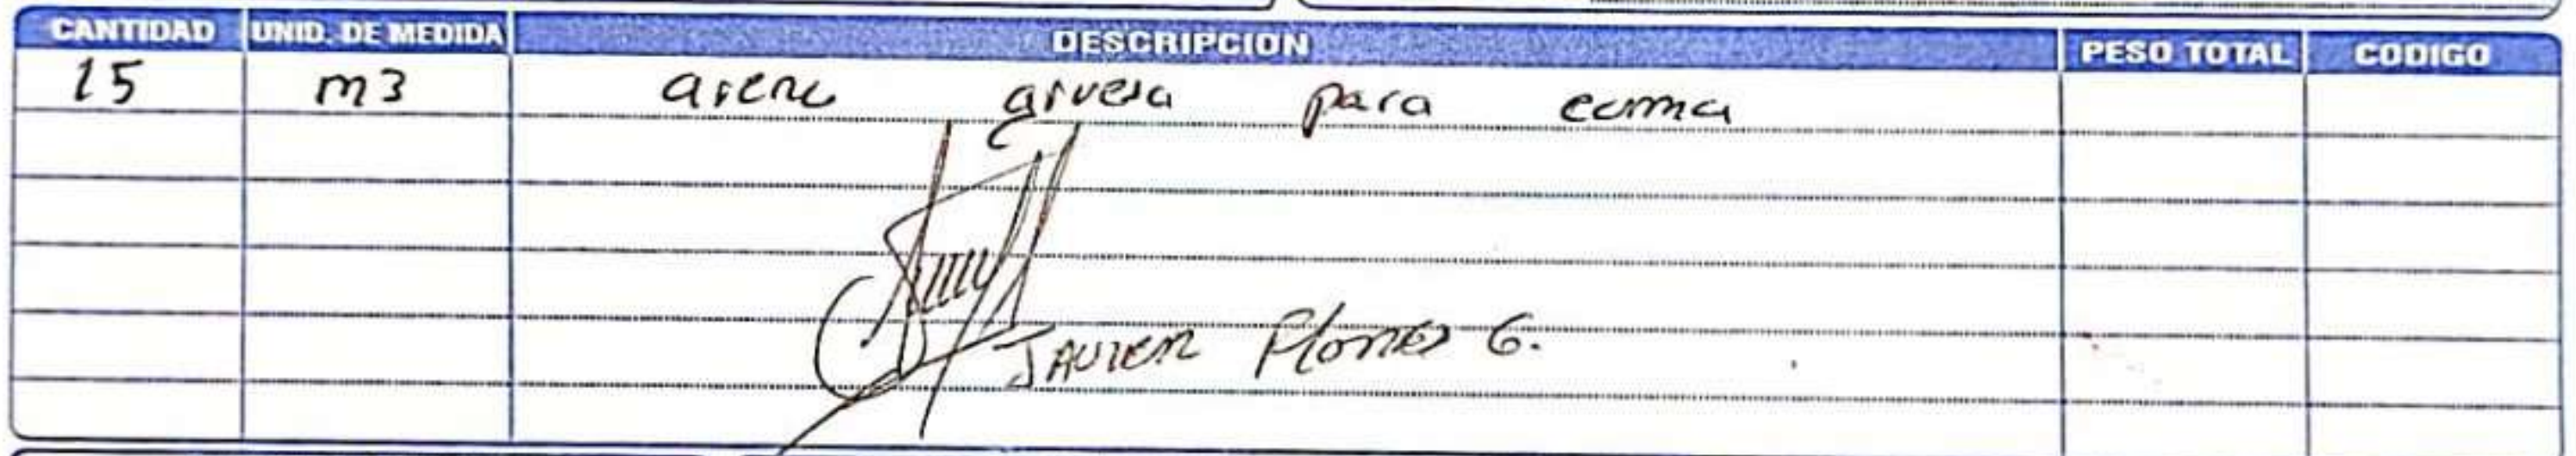 CANTIDAD UNID. DE MEDIDA DESCRIPCION PESO TOTAL CODIGO
15 m3 arena gruesa para cama
JAVIER Flores G.